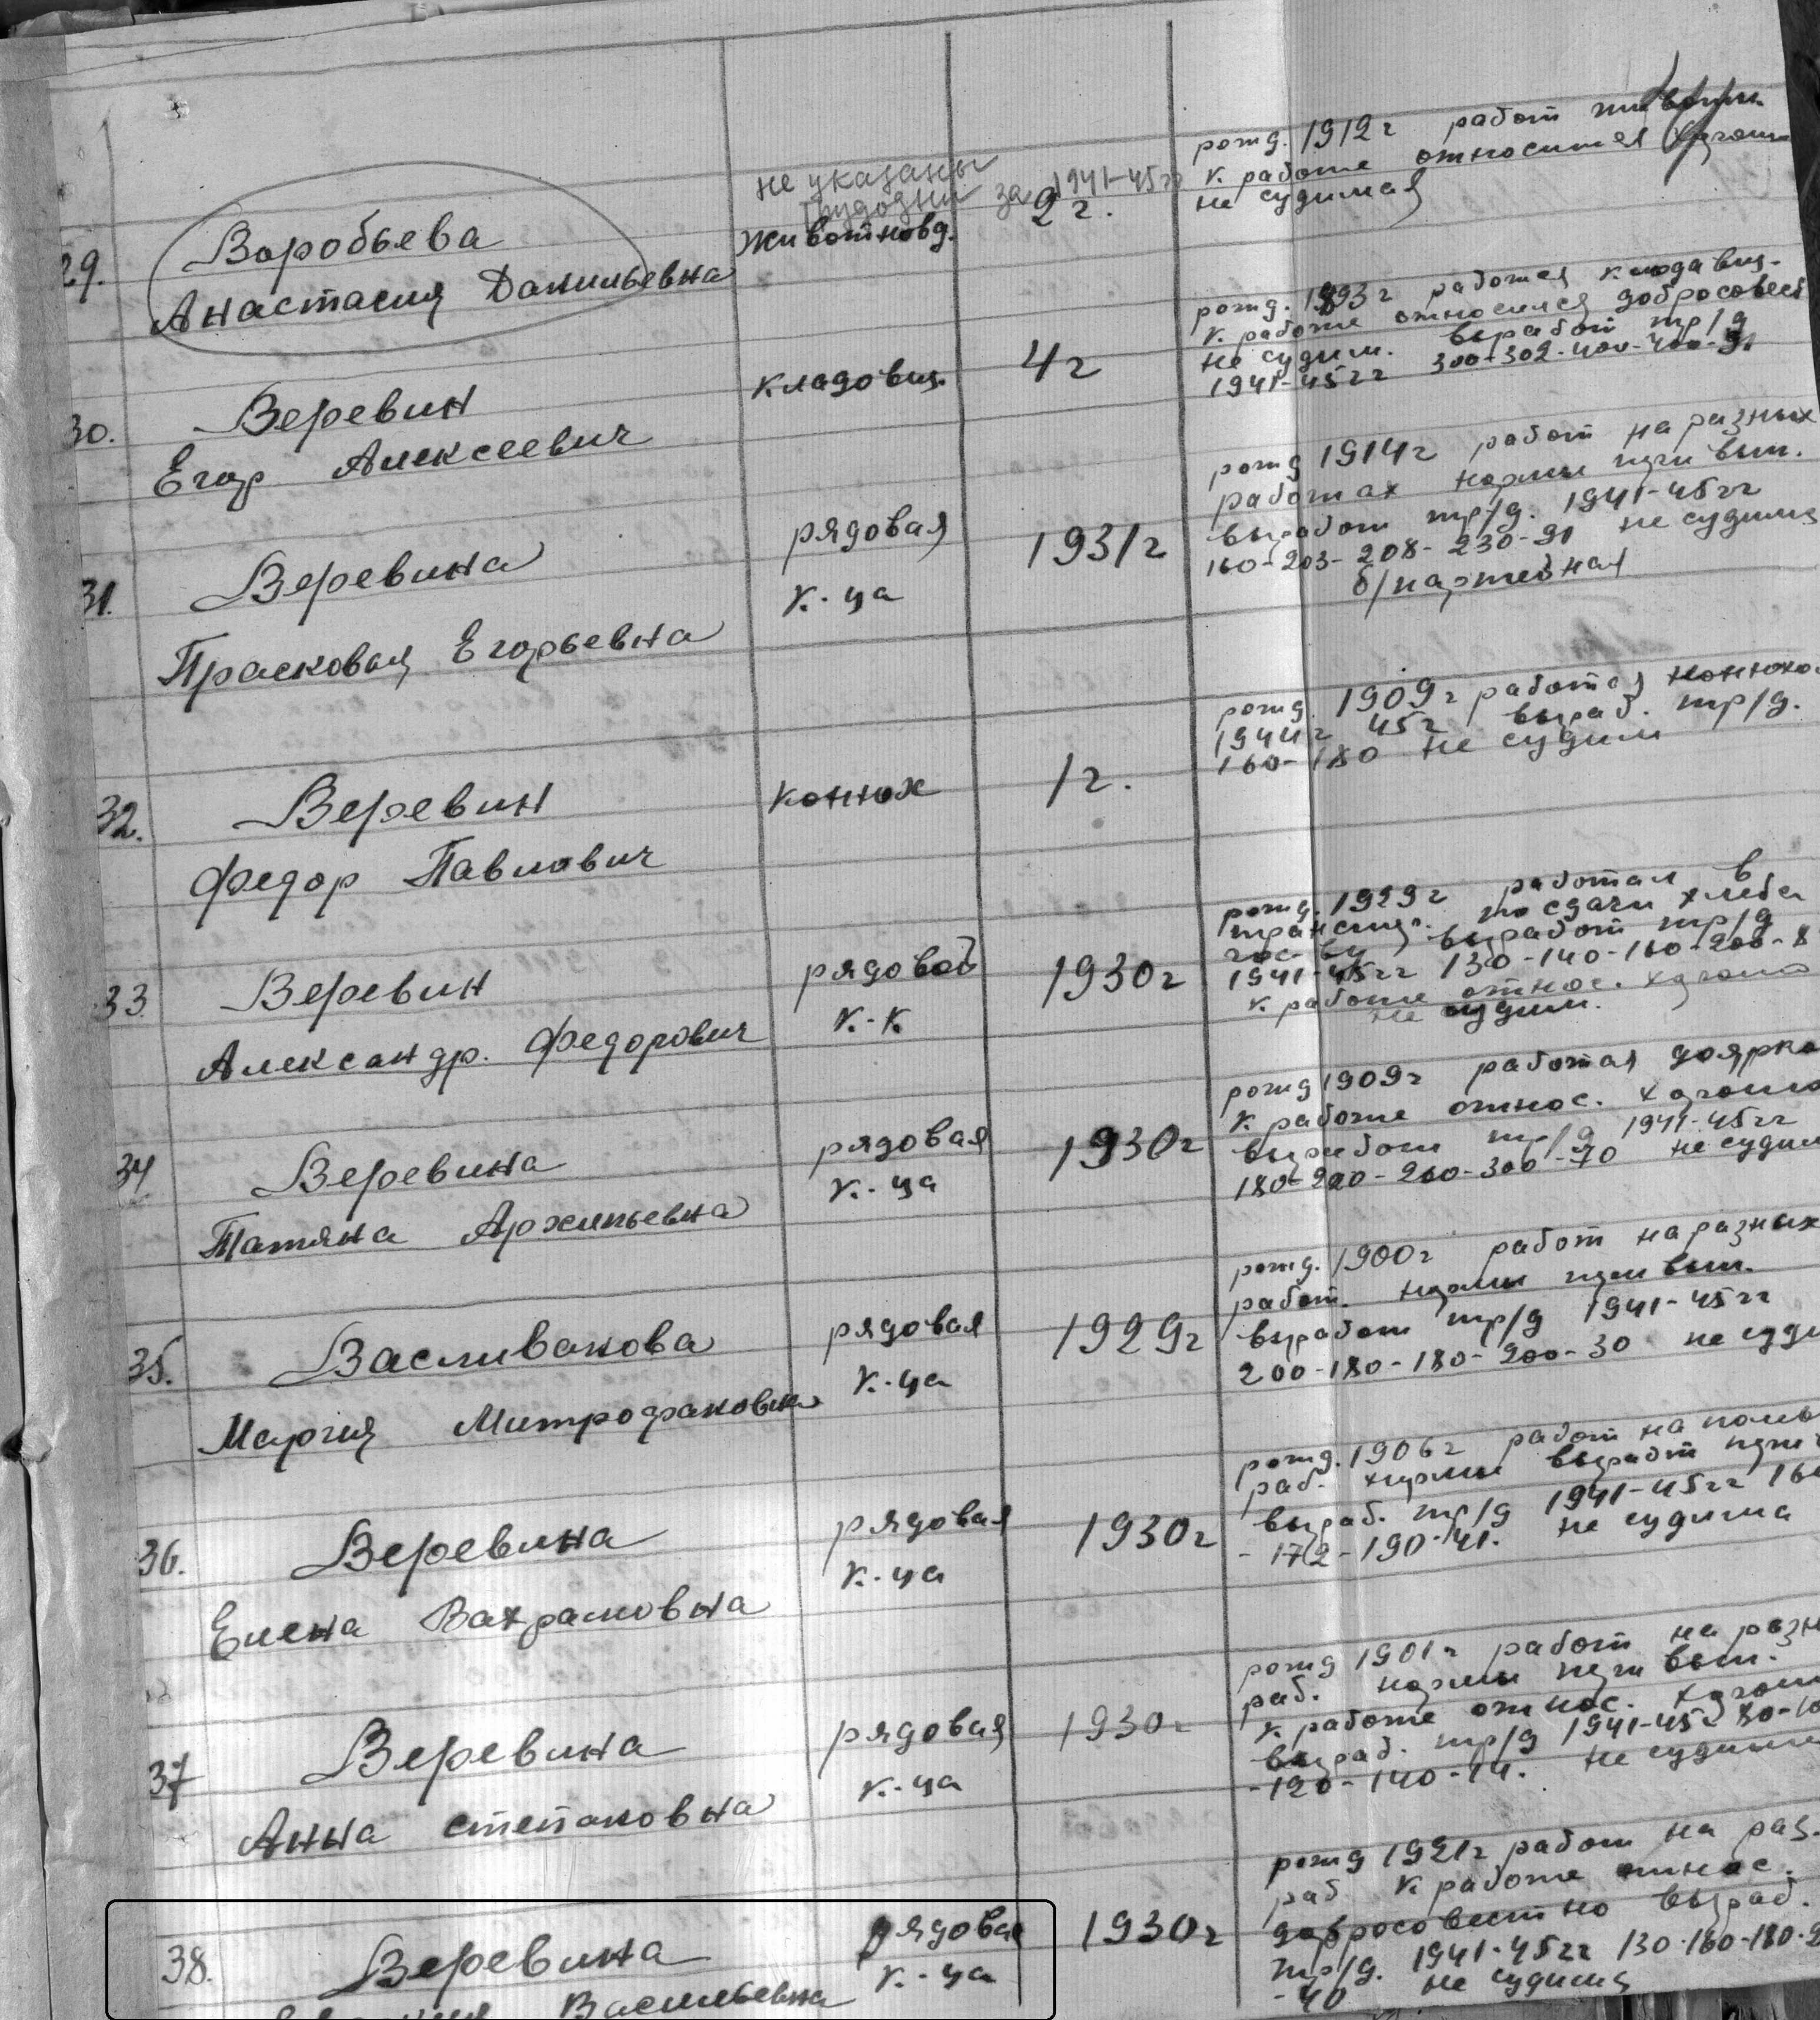 не указаны
трудодни за 1941-45гг
29. Воробьева
Анастасия Данильевна
Животновд.
2 г.
рожд. 1912 г работ
к работе относится хорошо
не судимая
30. Веревин
Егор Алексеевич
кладовщ.
4 г
рожд. 1893 г работая кладовщ.
к работе относился добросовест
не судим. выработ тр/д
1941-45гг 300-302-400-400-91
31. Веревина
Прасковая Егорьевна
рядовая
к-ца
1931 г
рожд 1914 г работ на разных
работах нормы при вып.
выработ тр/д. 1941-45гг
160-203-208-230-91 не судима
б/партейная
32. Веревин
Федор Павлович
конюх
1 г.
рожд 1909 г работая
1944 г 45 г вырaб. тр/д.
160-180 не судим
33. Веревин
Александр. Федорович
рядовой
к.-к.
1930 г
рожд. 1929 г работал в
транспор. по сдачи хлеба
гос-ву выработ тр/д
1941-45гг 130-140-160-200-8
к работе относ. хорошо
не судим.
34 Веревина
Татяна Архипьевна
рядовая
к.-ца
1930 г
рожд 1909 г работая доярко
к работе относ. хорошо
выработ тр/д 1941-45гг
180-200-260-300-70 не судим
35. Васливанова
Мария Митрофановна
рядовая
к.-ца
1929 г
рожд. 1900 г работ на разных
работ. нормы при вып.
выработ тр/д 1941-45гг
200-180-180-200-30 не суди
36. Веревина
Елена Вахрамовна
рядовая
к.-ца
1930 г
рожд. 1906 г работ на
раб. нормы выработ при
выраб. тр/д 1941-45гг 160
-172-190-41. не судима
37 Веревина
Анна степановна
рядовая
к.-ца
1930 г
рожд 1901 г работ на разн
раб. нормы при вып.
к работе относ. хорош
выраб. тр/д 1941-45г 80-10
-120-140-14. не судима
38. Веревина
Васильевна
рядовая
к.-ца
1930 г
рожд 1921 г работ на раз.
раб к работе относ.
добросовестно выраб.
тр/д. 1941-45гг 130-160-180-2
-40 не судима